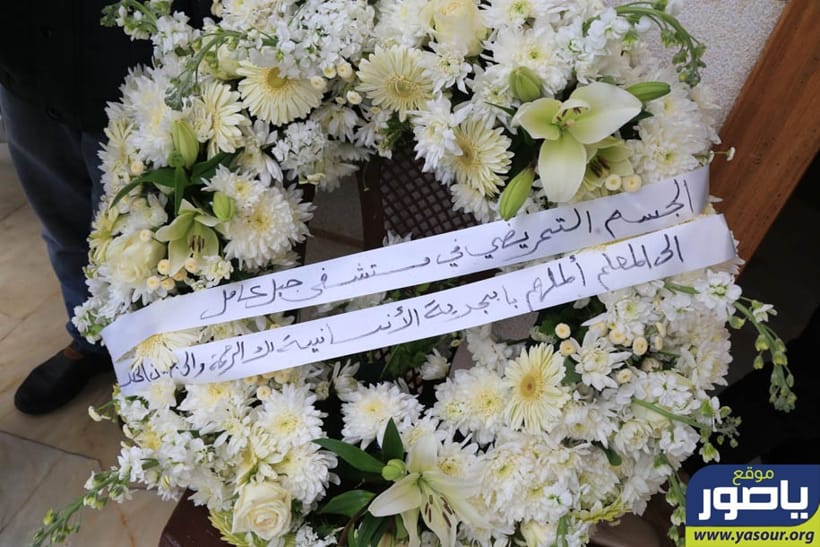 الجسم التمريضي في مستشفى جبل عامل
الى المعلم أنملهم بابجدية الأنسانية لك الرحمة والى
موقع
ياصور
www.yasour.org